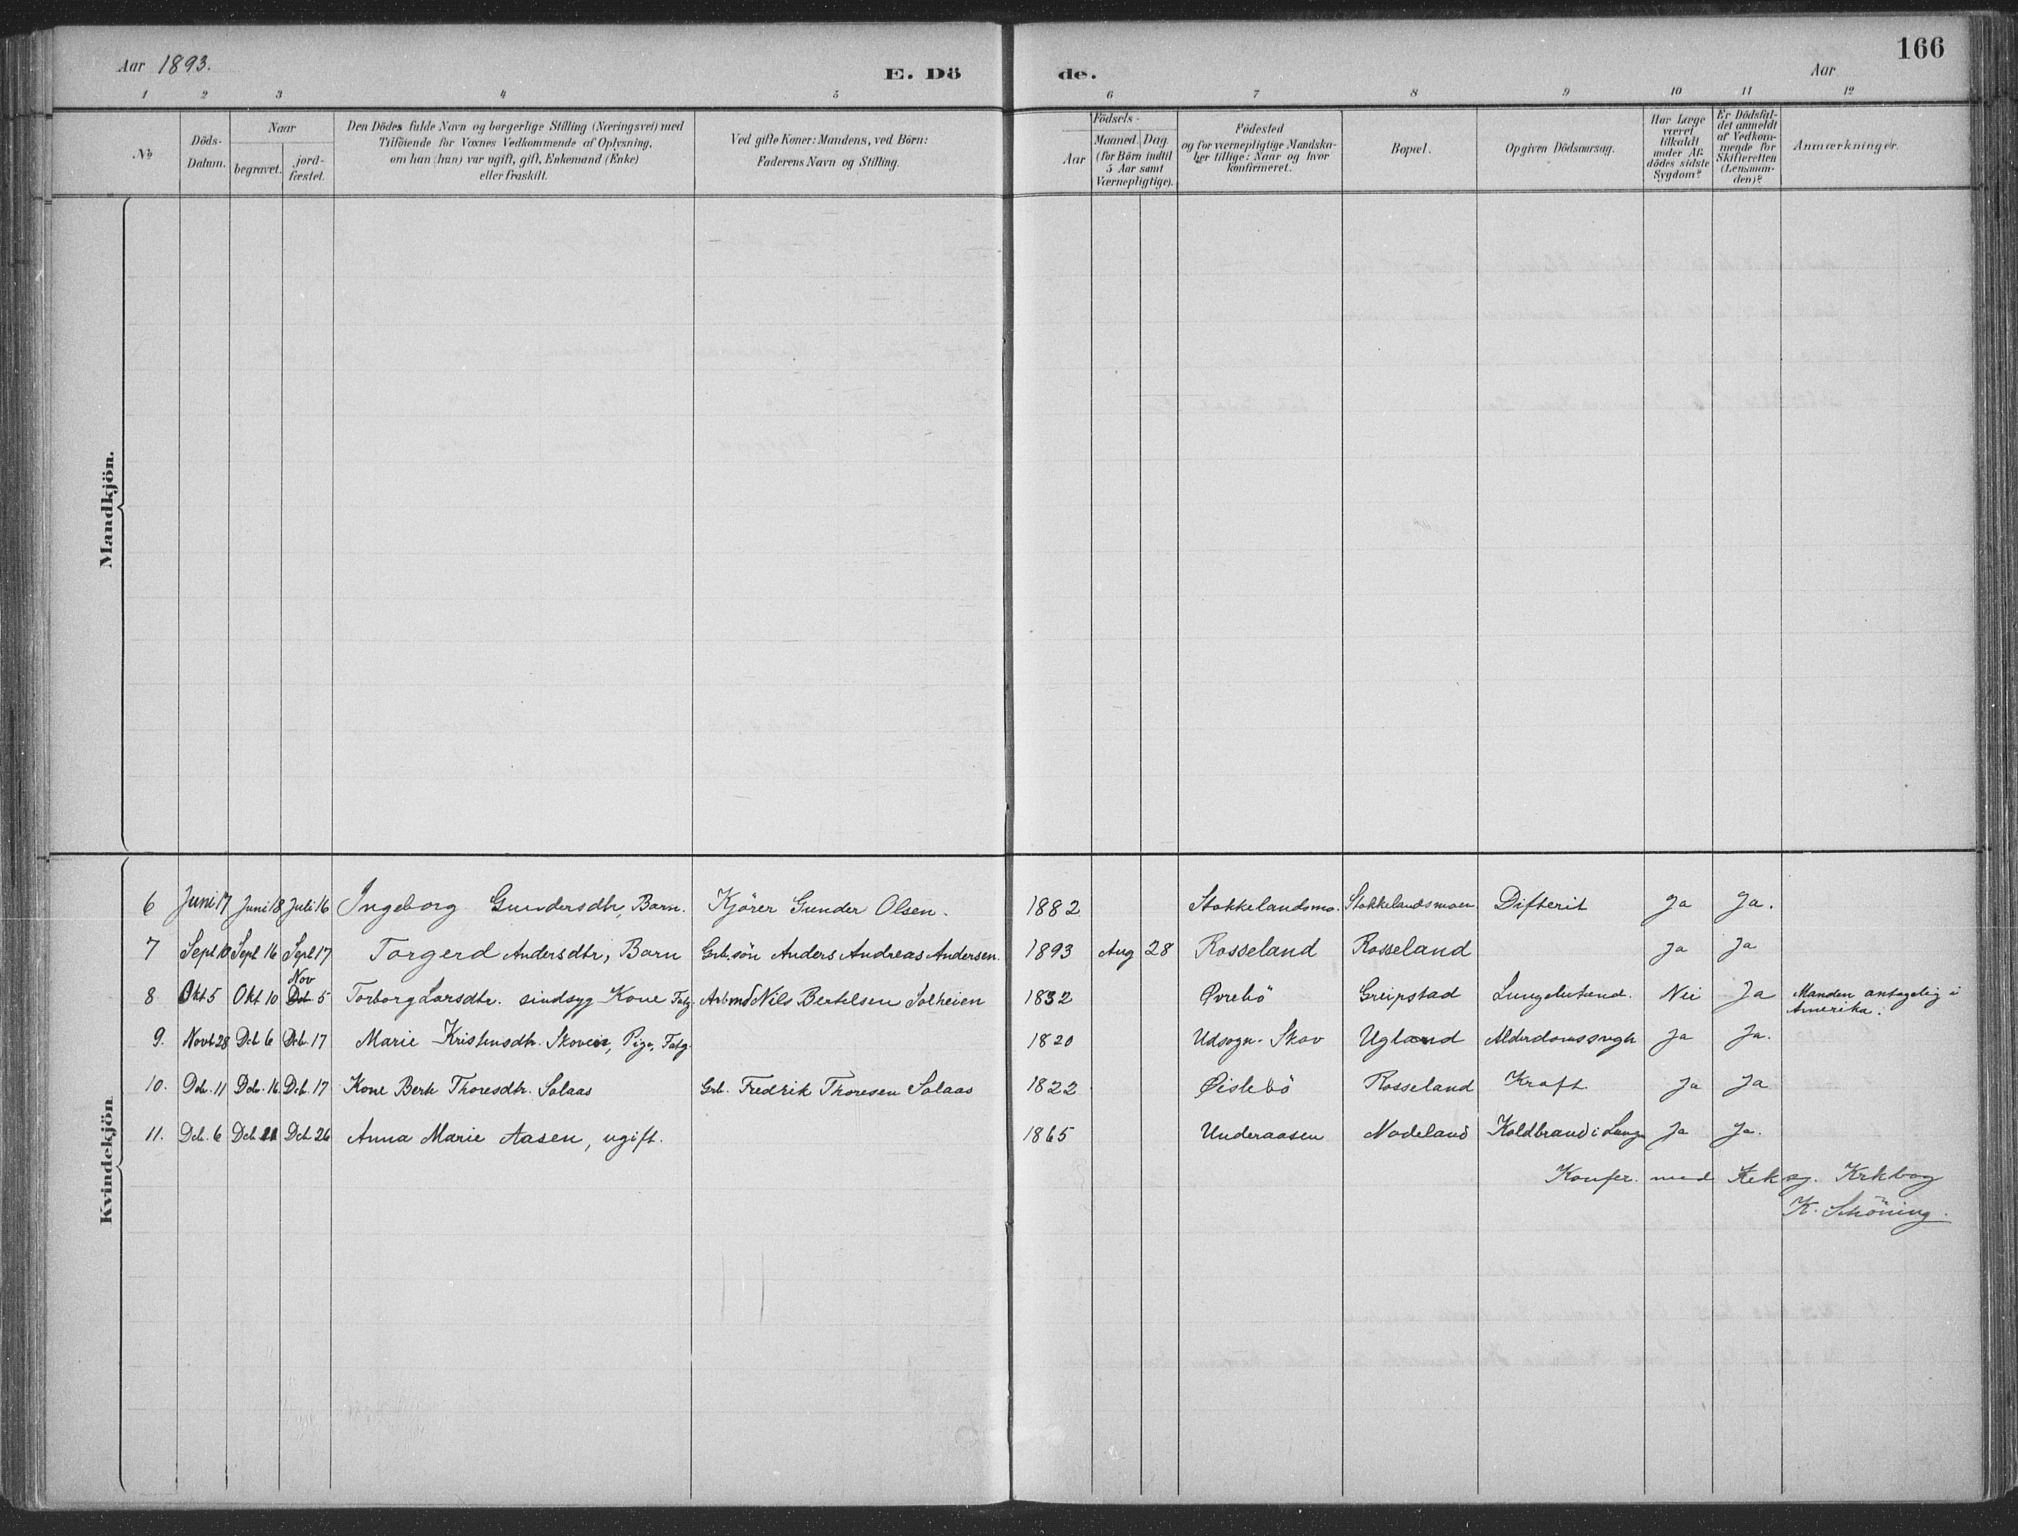 Aar 1893. E. Dö de. Aar 166
1 2 3 4 5 6 7 8 9 10 11 12
No
Döds-Datum.
Naar
begravet. jord-fæstet.
Den Dödes fulde Navn og borgerlige Stilling (Næringsvei) med
Tilföiende for Voxnes Vedkommende af Oplysning,
om han (hun) var ugift, gift, Enkemand (Enke)
eller fraskilt.
Ved gifte Koner: Mandens, ved Börn:
Faderens Navn og Stilling.
Födsels-
Aar Maaned. Dag
(for Börn indtil
5 Aar samt
Værnepligtige).
Födested
og for værnepligtige Mandska-
ber tillige: Naar og hvor
konfirmeret.
Bopæl.
Opgiven Dödsaarsag.
Har Læge
været
tilkaldt
under Af-
dödes sidste
Sygdom?
Er Dödsfal-
det anmeldt
af Vedkom-
mende for
Skifteretten
(Lensman-
den)?
Anmærkninger.
Mandkjön.
Kvindekjön
6 Juni 17 Juni 18 Juli 16 Ingeborg Gundersdtr, Barn. Kjörer Gunder Olsen. 1882 Stokkelandsmo. Stokkelandsmoen Difterit Ja Ja.
7 Sept 10 Sept 16 Sept 17 Torgerd Andersdtr, Barn Grbsön Anders Andreas Andersen. 1893 Aug 28 Rosseland Rosseland Ja Ja
Nov
8 Okt 5 Okt 10 Dcb 5 Torborg Larsdtr. sindsyg Kone Fatg. Arbmd Nils Bertelsen Solheien 1832 Øvrebö Greipstad Lungebetænd. Nei Ja Manden antagelig i
Amerika.
9. Novb 28 Dcb 6 Dcb. 17 Marie Kristensdtr. Skoveie, Pige, Fatg. 1820 Udsogn-Skov Ugland Alderdomssvagh Ja Ja.
10. Dcb. 11 Dcb. 16 Dcb. 17 Kone Berte Thoresdtr. Solaas Grb. Fredrik Thoresen Solaas 1822 Øislebö Rosseland Kræft Ja Ja
11. Dcb. 6 Dcb 21 Dcb 26 Anna Marie Aasen, ugift. 1865 Underaasen Nodeland Koldbrand i Lunge Ja Ja.
Konfer. med Kirkbog
K. Schöning.